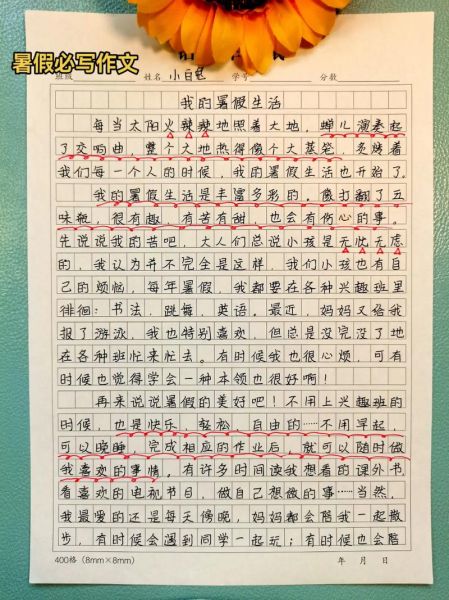 暑假必写作文
班级 姓名 小白兔 学号 分数
我的暑假生活
每当太阳火辣辣地照着大地，蝉儿演奏起
了交响曲，整个大地热得像个大蒸笼，炙烤着
我们每一个人的时候，我的暑假生活也开始了。
我的暑假生活是丰富多彩的，像打翻了五
味瓶，很有趣，有苦有甜，也会有伤心的事。
先说说我的苦吧，大人们总说小孩是无忧无虑
的，我认为并不完全是这样，我们小孩也有自
己的烦恼，每年暑假，我都要在各种兴趣班里
徘徊：书法，跳舞，英语。最近，妈妈又给我
报了游泳，我也特别喜欢，但总是没完没了地
在各种班忙来忙去。有时候我也很心烦，可有
时候也觉得学会一种本领也很好啊！
再来说说暑假的美好吧！不用上兴趣班的
时候，也是快乐，轻松，自由的……不用早起，
可以晚睡，完成相应的作业后，就可以随时做
我喜欢的事情，有许多时间读我想看的课外书，
看喜欢的电视节目，做自己想做的事……当然，
我最爱的还是每天傍晚，妈妈都会陪我一起散
步，有时候会遇到同学一起玩；有时候也会陪
400格（8mm×8mm） 年 月 日